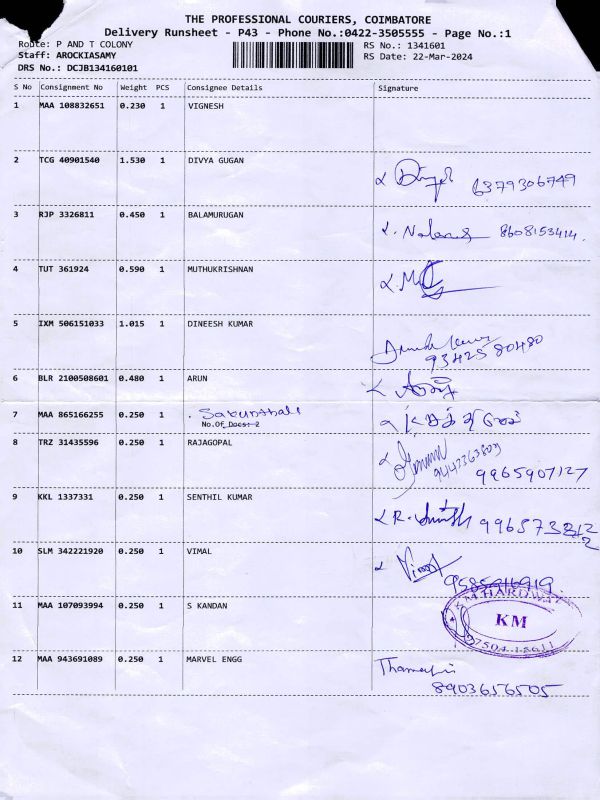 THE PROFESSIONAL COURIERS, COIMBATORE
Delivery Runsheet - P43 - Phone No.:0422-3505555 - Page No.:1
Route: P AND T COLONY
RS No.: 1341601
Staff: AROCKIASAMY
RS Date: 22-Mar-2024
DRS No.: DCJB134160101
S No Consignment No Weight PCS Consignee Details Signature
1 MAA 108832651 0.230 1 VIGNESH
2 TCG 40901540 1.530 1 DIVYA GUGAN
6379306749
3 RJP 3326811 0.450 1 BALAMURUGAN
8608153414.
4 TUT 361924 0.590 1 MUTHUKRISHNAN
5 IXM 506151033 1.015 1 DINEESH KUMAR
93425 80480
6 BLR 2100508601 0.480 1 ARUN
7 MAA 865166255 0.250 1
No.Of Docs: 2
8 TRZ 31435596 0.250 1 RAJAGOPAL
9965907127
9 KKL 1337331 0.250 1 SENTHIL KUMAR
10 SLM 342221920 0.250 1 VIMAL
Vimal
11 MAA 107093994 0.250 1 S KANDAN
KM HARDWARE
KM
12 MAA 943691089 0.250 1 MARVEL ENGG
8903656505